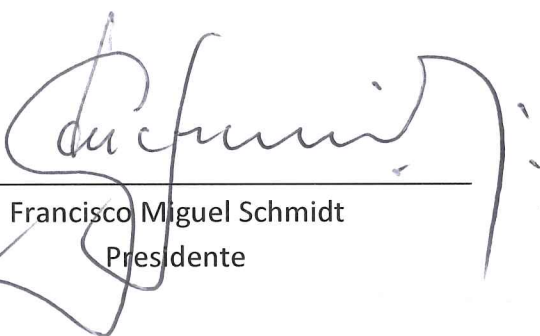 Francisco Miguel Schmidt
Presidente